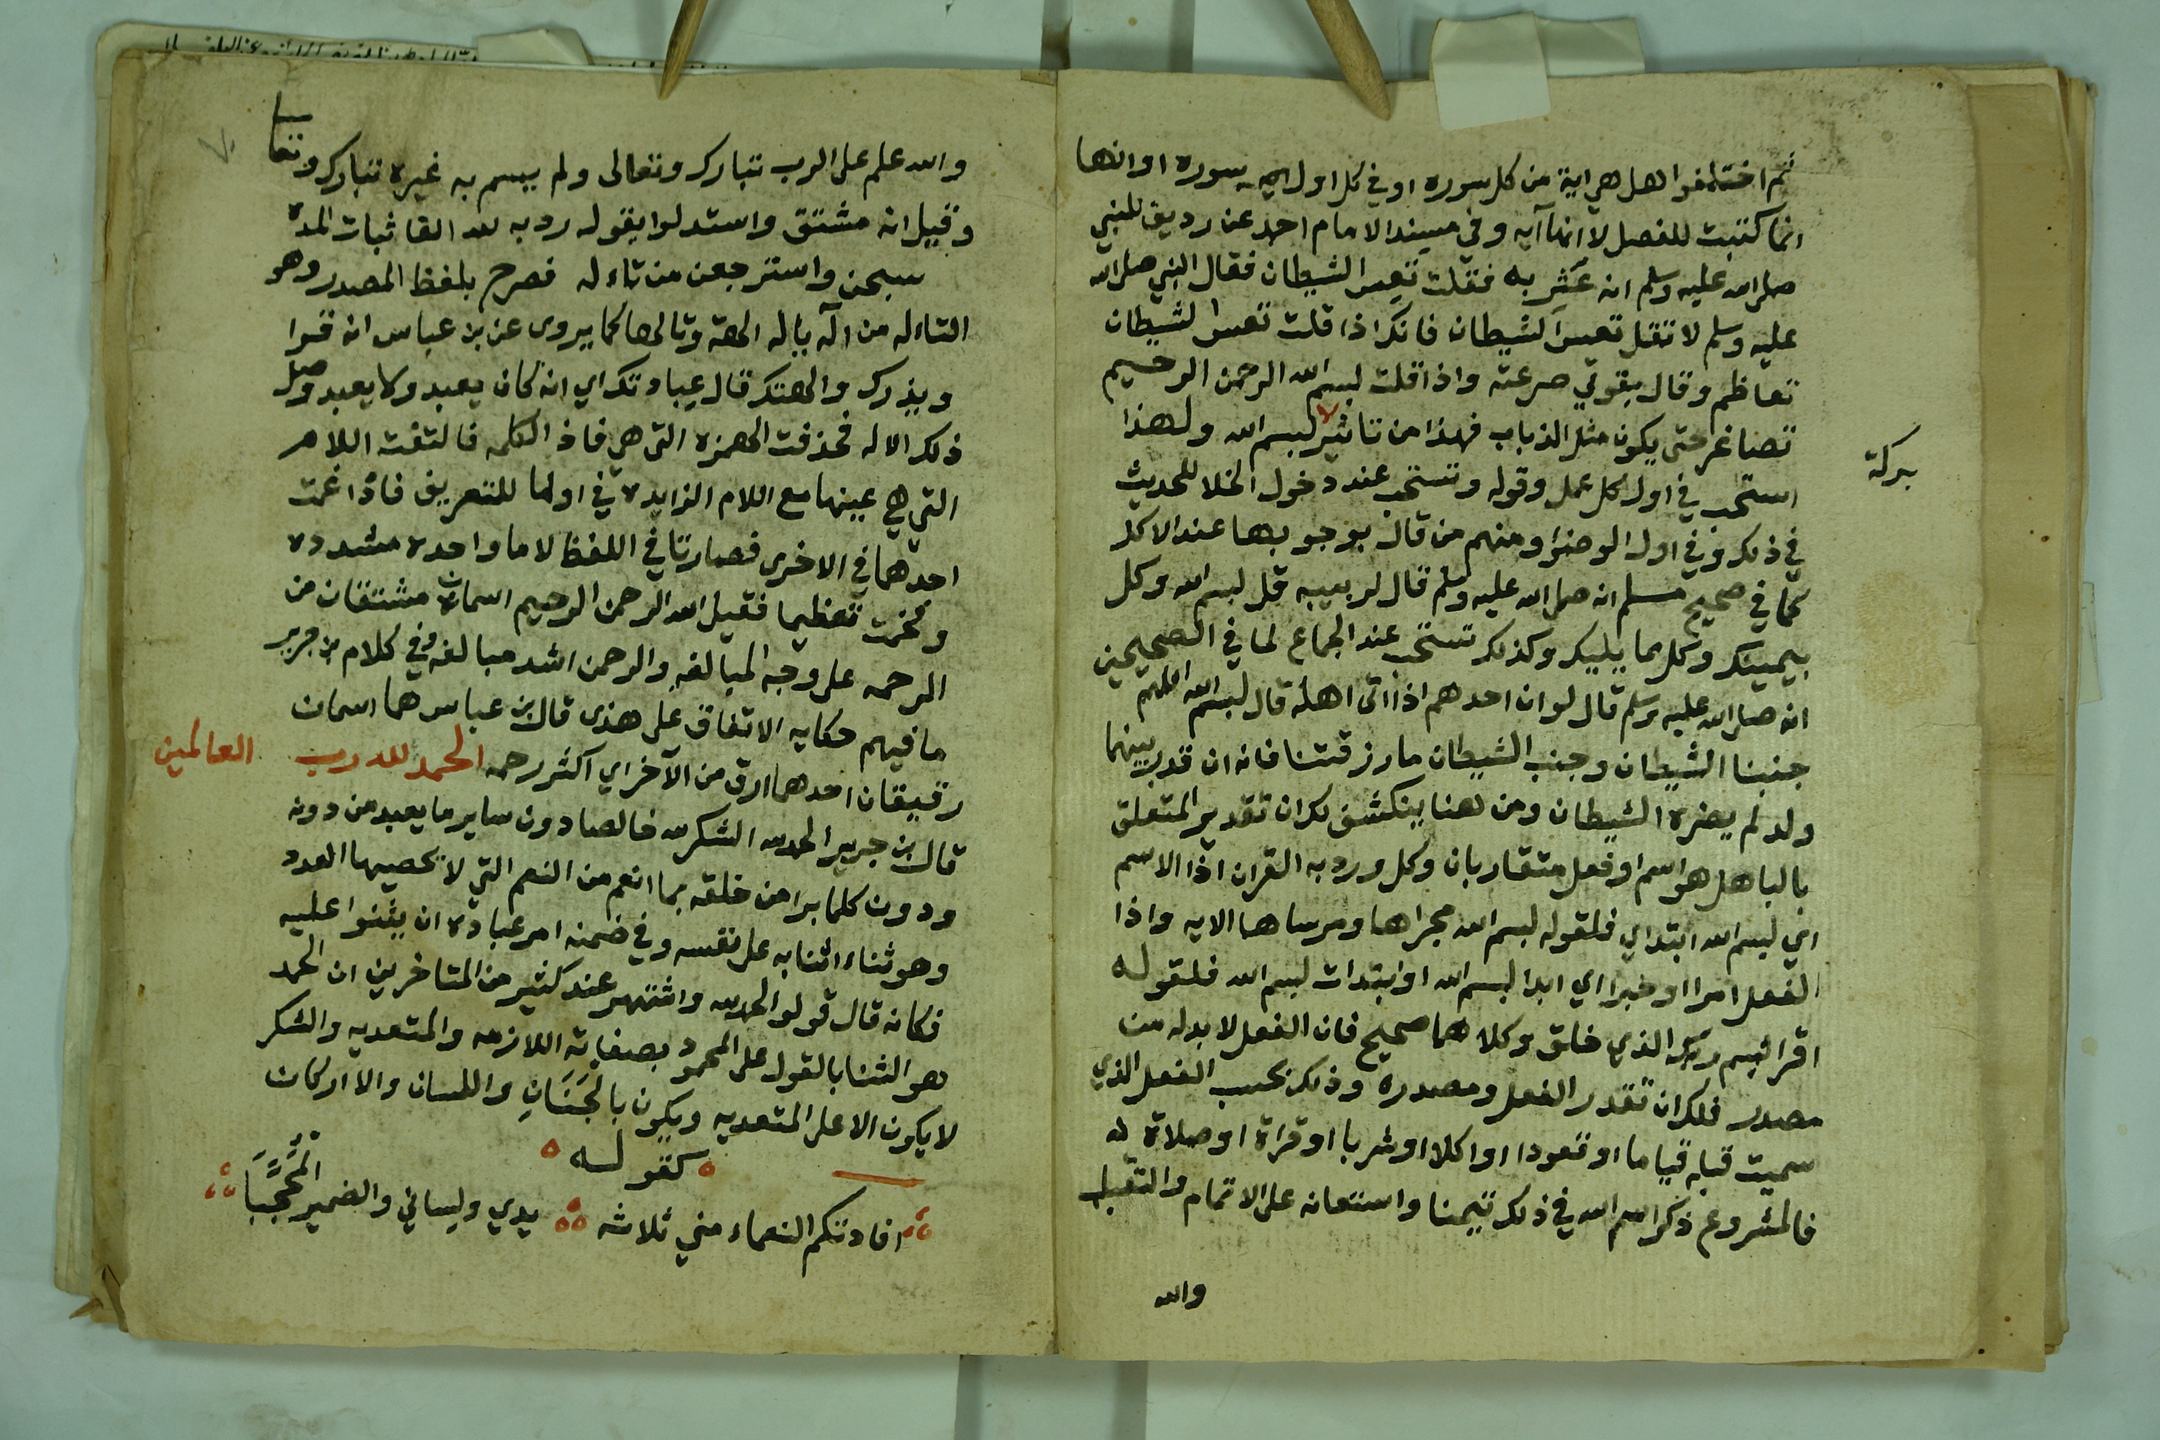 ثم اختلفوا هل هي اية من كل سورة او في كل اول سورة او انها
انما كتبت للفصل لا انها آيه وفي مسند الامام احمد عن رديف للنبي
صلى الله عليه وسلم انه عَثَر به فقلت تعس الشيطان فقال النبي صلى الله
عليه وسلم لا تقل تعس الشيطان فانك اذا قلت تعس الشيطان
تعاظم وقال بقوتي صرعته واذا قلت بسم الله الرحمن الرحيم
تصاغر حتى يكون مثل الذباب فهذا من تاثير بسم الله ولهذا
بركة
استحب في اول كل عمل وقوله وتستحب عند دخول الخلا للحديث
في ذلك وفي اول الوضوء ومنهم من قال بوجوبها عند الاكل
كما في صحيح مسلم انه صلى الله عليه وسلم قال لربيبه قل بسم الله وكل
بيمينك وكل مما يليك وكذلك تستحب عند الجماع لما في الصحيحين
انه صلى الله عليه وسلم قال لو ان احدهم اذا اتى اهله قال بسم الله اللهم
جنبنا الشيطان وجنب الشيطان ما رزقتنا فانه ان قدر بينهما
ولد لم يضره الشيطان ومن هنا ينكشف لك ان تقدير المتعلق
بالبا هل هو اسم او فعل متقاربان وكل ورد به القران اذا الاسم
اي بسم الله ابتداي فلقوله بسم الله مجراها ومرساها الايه واذا
الفعل امرا او خبرا اي ابدا بسم الله او ابتدات بسم الله فلقوله
اقرا بسم ربك الذي خلق وكلاهما صحيح فان الفعل لا بد له من
مصدر فلك ان تقدر الفعل ومصدره وذلك بحسب الفعل الذي
سميت قبله قياما او قعودا او اكلا او شربا او قراة او صلاة
فالمشروع ذكر اسم الله في ذلك تيمنا واستعانه على الاتمام والتقبل
والله
والله علم على الرب تبارك وتعالى ولم يسم به غيره تبارك وتعا
وقيل انه مشتق واستدلوا بقوله رد به لله القا ثبات المده
سبحن واسترجعن من تاءله فصرح بلفظ المصدر وهو
التاءله من اله ياله الهة وتالها كما يروى عن بن عباس انه قرا
ويذرك والهتك قال عبادتك اي انه كان يعبد ولا يعبد وصل
ذلك الاله فحذفت الهمزه التي هي فاذ الكلمه فالتقت اللام
التي هي عينها مع اللام الزايده في اولها للتعريف فادغمت
احدهما في الاخرى فصارتا في اللفظ لاما واحده مشدده
وفخمت تعظيما فقيل الله الرحمن الرحيم اسمان مشتقان من
الرحمه على وجه المبالغه والرحمن اشد مبالغه وفي كلام بن جرير
ما فيهم حكايه الاتفاق على هذى قال بن عباس هما اسمان
رقيقان احدهما ارق من الآخر اي اكثر رحمه الحمد لله رب العالمين
قال بن جرير الحمد لله الشكر لله خالصا دون ساير ما يعبد من دونه
ودون كلما برا من خلقه بما انعم من النعم التي لا يحصيها العدد
وهو ثناء اثنا به على نفسه وفي ضمنه امر عباده ان يثنوا عليه
فكانه قال قولو الحمد لله واشتهر عند كثير من المتاخرين ان الحمد
هو الثنا بالقول على المحمود بصفاته اللازمه والمتعديه والشكر
لا يكون الا على المتعديه ويكون بالجَنَانِ واللسان والاركان
كقوله
افادتكم النعماء مني ثلاثه يدي ولساني والضمير المُحَجَّبَا